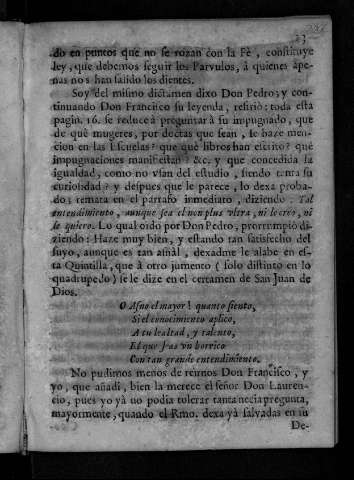 23
do en puntos que no se rozan con la Fè, constituye
ley, que debemos seguir los Parvulos, à quienes ape-
nas nos han salido los dientes.
Soy del mismo dictamen dixo Don Pedro; y con-
tinuando Don Francisco su leyenda, refirió: toda esta
pagin. 16. se reduce à preguntar à su impugnado, que
de què mugeres, por doctas que sean, se haze men-
cion en las Escuelas? que què libros han escrito? què
impugnaciones manifiestan? &c. y que concedida la
igualdad, como no vsan del estudio, siendo tanta su
curiosidad? y despues que le parece, lo dexa proba-
do; remata en el parrafo inmediato, diziendo: Tal
entendimiento, aunque sea el non plus vltra, ni le creo, ni
le quiero. Lo qual oido por Don Pedro, prorrumpiò di-
ziendo: Haze muy bien, y estando tan satisfecho del
suyo, aunque es tan asnàl, dexadme le alabe en es-
ta Quintilla, que à otro jumento (solo distinto en lo
quadrupedo) se le dize en el certamen de San Juan de
Dios.
O Asno el mayor! quanto siento,
Si el conocimiento aplico,
A tu lealtad, y talento,
El que seas vn borrico
Con tan grande entendimiento.
No pudimos menos de reirnos Don Francisco, y
yo, que añadì, bien la merece el señor Don Lauren-
cio, pues yo yà no podia tolerar tanta necia pregunta,
mayormente, quando el Rmo. dexa yà salvadas en su
De-